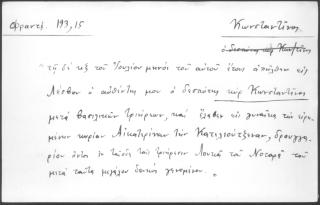 Φραντζ. 193,15
Κωνσταντῖνος
ὁ δεσπότης κὺρ Κων/τῖνος
"τῇ δὲ κζ τοῦ Ἰουλίου μηνὸς τοῦ αὐτοῦ ἔτους ἀπῆλθεν εἰς
Λέσβον ὁ αὐθέντης μου ὁ δεσπότης κὺρ Κωνσταντῖνος
μετὰ βασιλικῶν τριήρεων, καὶ ἔλαβεν εἰς γυναῖκα τὴν εἰρη-
μένην κυρίαν Αἰκατερίναν τὴν Κατελιούτζεναν, δρουγγα-
ρίου ὄντος ἐν ταύταις ταῖς τριήρεσιν Λουκᾶ τοῦ Νοταρᾶ τοῦ
μετὰ ταῦτα μεγάλου δουκὸς γενομένου. "